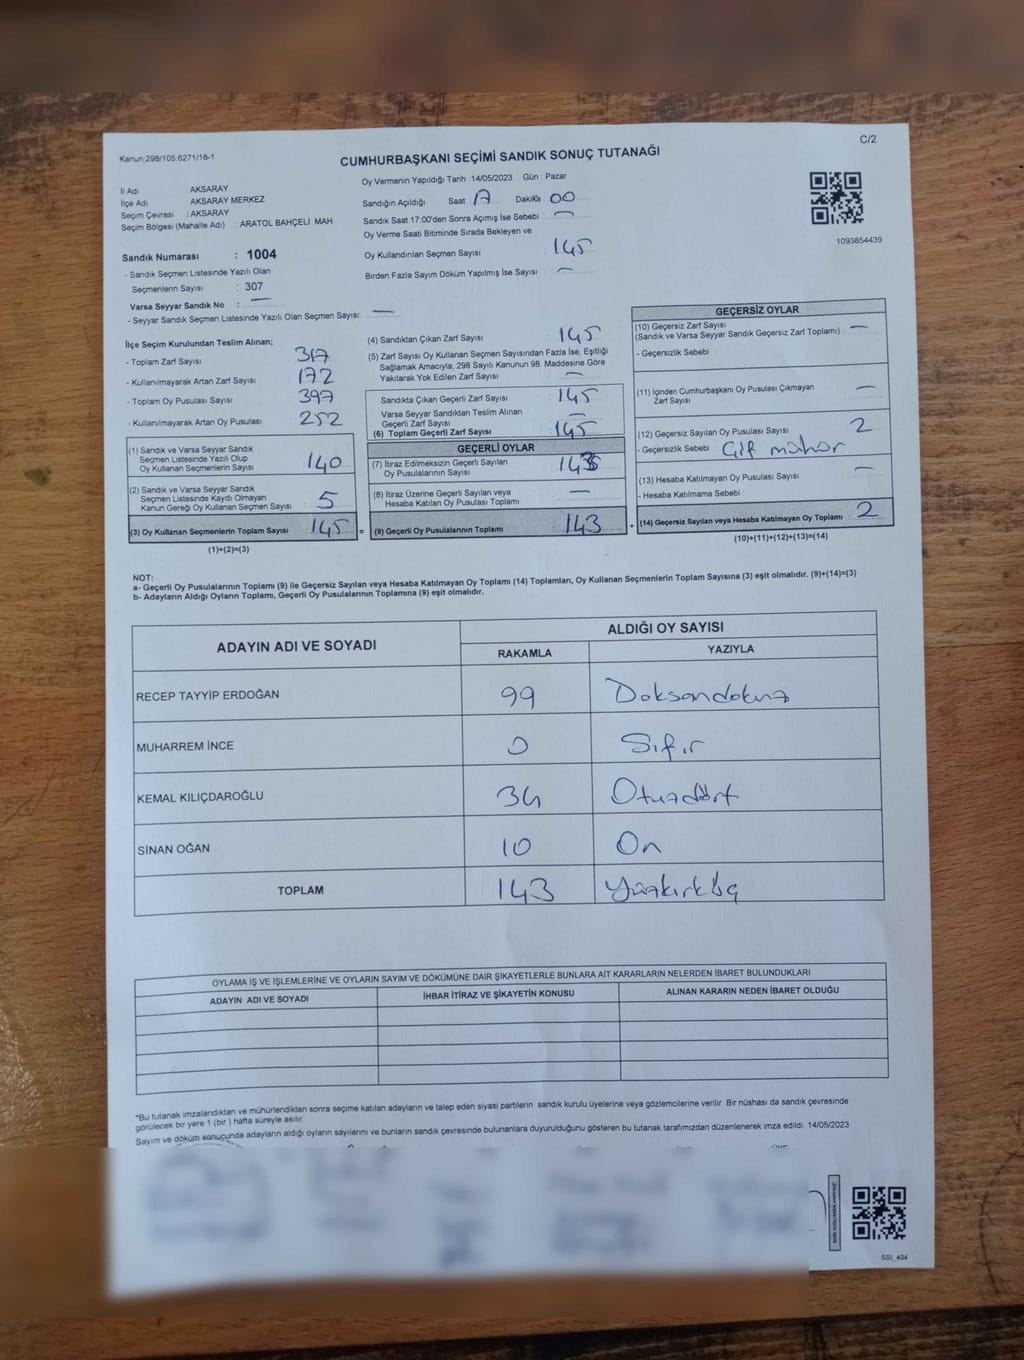 C/2
Kanun;298/105,6271/18-1
CUMHURBAŞKANI SEÇİMİ SANDIK SONUÇ TUTANAĞI
İl Adı : AKSARAY
İlçe Adı : AKSARAY MERKEZ
Seçim Çevresi : AKSARAY
Seçim Bölgesi (Mahalle Adı) : ARATOL BAHÇELİ MAH.
Sandık Numarası : 1004
- Sandık Seçmen Listesinde Yazılı Olan
Seçmenlerin Sayısı : 307
Varsa Seyyar Sandık No : —
- Seyyar Sandık Seçmen Listesinde Yazılı Olan Seçmen Sayısı: —
Oy Vermenin Yapıldığı Tarih : 14/05/2023 Gün : Pazar
Sandığın Açıldığı Saat 17 Dakika 00
Sandık Saat 17:00'den Sonra Açımış İse Sebebi : —
Oy Verme Saati Bitiminde Sırada Bekleyen ve
Oy Kullandırılan Seçmen Sayısı : 145
Birden Fazla Sayım Döküm Yapılmış İse Sayısı : —
1093854439
İlçe Seçim Kurulundan Teslim Alınan;
- Toplam Zarf Sayısı : 317
- Kullanılmayarak Artan Zarf Sayısı : 172
- Toplam Oy Pusulası Sayısı : 397
- Kullanılmayarak Artan Oy Pusulası : 252
(1) Sandık ve Varsa Seyyar Sandık
Seçmen Listesinde Yazılı Olup
Oy Kullanan Seçmenlerin Sayısı : 140
(2) Sandık ve Varsa Seyyar Sandık
Seçmen Listesinde Kayıtlı Olmayan
Kanun Gereği Oy Kullanan Seçmen Sayısı : 5
(3) Oy Kullanan Seçmenlerin Toplam Sayısı : 145 =
(1)+(2)=(3)
(4) Sandıktan Çıkan Zarf Sayısı : 145
(5) Zarf Sayısı Oy Kullanan Seçmen Sayısından Fazla İse, Eşitliği
Sağlamak Amacıyla, 298 Sayılı Kanunun 98. Maddesine Göre
Yakılarak Yok Edilen Zarf Sayısı : —
Sandıkta Çıkan Geçerli Zarf Sayısı : 145
Varsa Seyyar Sandıktan Teslim Alınan
Geçerli Zarf Sayısı : —
(6) Toplam Geçerli Zarf Sayısı : 145
GEÇERLİ OYLAR
(7) İtiraz Edilmeksizin Geçerli Sayılan
Oy Pusulalarının Sayısı : 143
(8) İtiraz Üzerine Geçerli Sayılan veya
Hesaba Katılan Oy Pusulası Toplamı : —
(9) Geçerli Oy Pusulalarının Toplamı : 143 +
GEÇERSİZ OYLAR
(10) Geçersiz Zarf Sayısı : —
(Sandık ve Varsa Seyyar Sandık Geçersiz Zarf Toplamı)
- Geçersizlik Sebebi :
(11) İçinden Cumhurbaşkanı Oy Pusulası Çıkmayan
Zarf Sayısı : —
(12) Geçersiz Sayılan Oy Pusulası Sayısı : 2
- Geçersizlik Sebebi : Çift mühür
(13) Hesaba Katılmayan Oy Pusulası Sayısı : —
- Hesaba Katılmama Sebebi :
(14) Geçersiz Sayılan veya Hesaba Katılmayan Oy Toplamı : 2
(10)+(11)+(12)+(13)=(14)
NOT:
a- Geçerli Oy Pusulalarının Toplamı (9) ile Geçersiz Sayılan veya Hesaba Katılmayan Oy Toplamı (14) Toplamları, Oy Kullanan Seçmenlerin Toplam Sayısına (3) eşit olmalıdır. (9)+(14)=(3)
b- Adayların Aldığı Oyların Toplamı, Geçerli Oy Pusulalarının Toplamına (9) eşit olmalıdır.
ADAYIN ADI VE SOYADI ALDIĞI OY SAYISI
RAKAMLA YAZIYLA
RECEP TAYYİP ERDOĞAN 99 Doksandokuz
MUHARREM İNCE 0 Sıfır
KEMAL KILIÇDAROĞLU 34 Otuzdört
SİNAN OĞAN 10 On
TOPLAM 143 Yüzkırküç
OYLAMA İŞ VE İŞLEMLERİNE VE OYLARIN SAYIM VE DÖKÜMÜNE DAİR ŞİKAYETLERLE BUNLARA AİT KARARLARIN NELERDEN İBARET BULUNDUKLARI
ADAYIN ADI VE SOYADI İHBAR İTİRAZ VE ŞİKAYETİN KONUSU ALINAN KARARIN NEDEN İBARET OLDUĞU
*Bu tutanak imzalandıktan ve mühürlendikten sonra seçime katılan adayların ve talep eden siyasi partilerin sandık kurulu üyelerine veya gözlemcilerine verilir. Bir nüshası da sandık çevresinde
görülecek bir yere 1 (bir ) hafta süreyle asılır.
Sayım ve döküm sonuçunda adayların aldığı oyların sayılarını ve bunların sandık çevresinde bulunanlara duyurulduğunu gösteren bu tutanak tarafımızdan düzenlenerek imza edildi. 14/05/2023
GSI_404